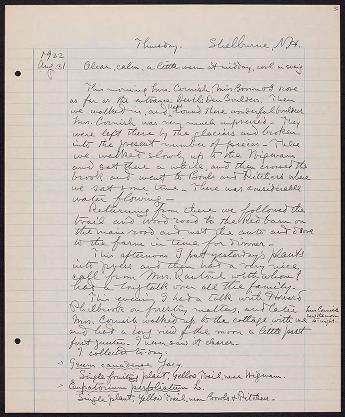 Thursday. Shelburne, N.H.
1922
Aug 31 Clear, calm, a little warm at midday, cool in evening
This morning Mrs. Cornish, Mrs. and I went
as far as the entrance Devils Den Boulders. Then
we walked in and found these wonderful boulders
Mrs. Cornish was very much impressed. They
were left there by the glaciers and broken
into the present number of pieces – Then
we walked slowly up to the Wigwam
and sat there a while, and then crossed the
brook and went to Bowls and Pitchers where
we sat some time. There was considerable
water flowing –
Returning from there we followed the
trail and wood road to the red barn on
the main road and met the auto and drove
to the farm in time for dinner –
This afternoon I put yesterday's plants
into press and then had a very nice
call from Mrs. with whom I
had a long talk over all the family.
This evening I had a talk with
Philbrook on forestry matters, and later
Mrs. Cornish walked up to the cottage with me
and had a long view of the moon a little past
first quarter. I never saw it clearer.
I collected to-day.
Geum canadense Jacq.
Single fruiting plant, Yellow Trail, near Wigwam.
Eupatorium perfoliatum L.
Single plant, Yellow Trail, near Bowls & Pitchers.